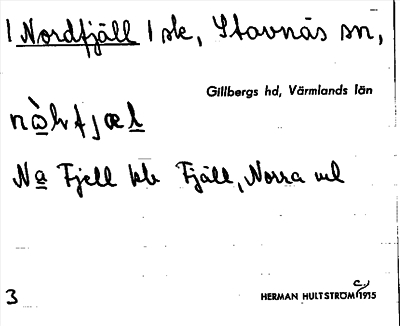 | Nordfjäll | sk, Stavnäs sn,
Gillbergs hd, Värmlands län
Na Fjell jfr Fjäll, Norra
3
HERMAN HULTSTRÖM c./1915